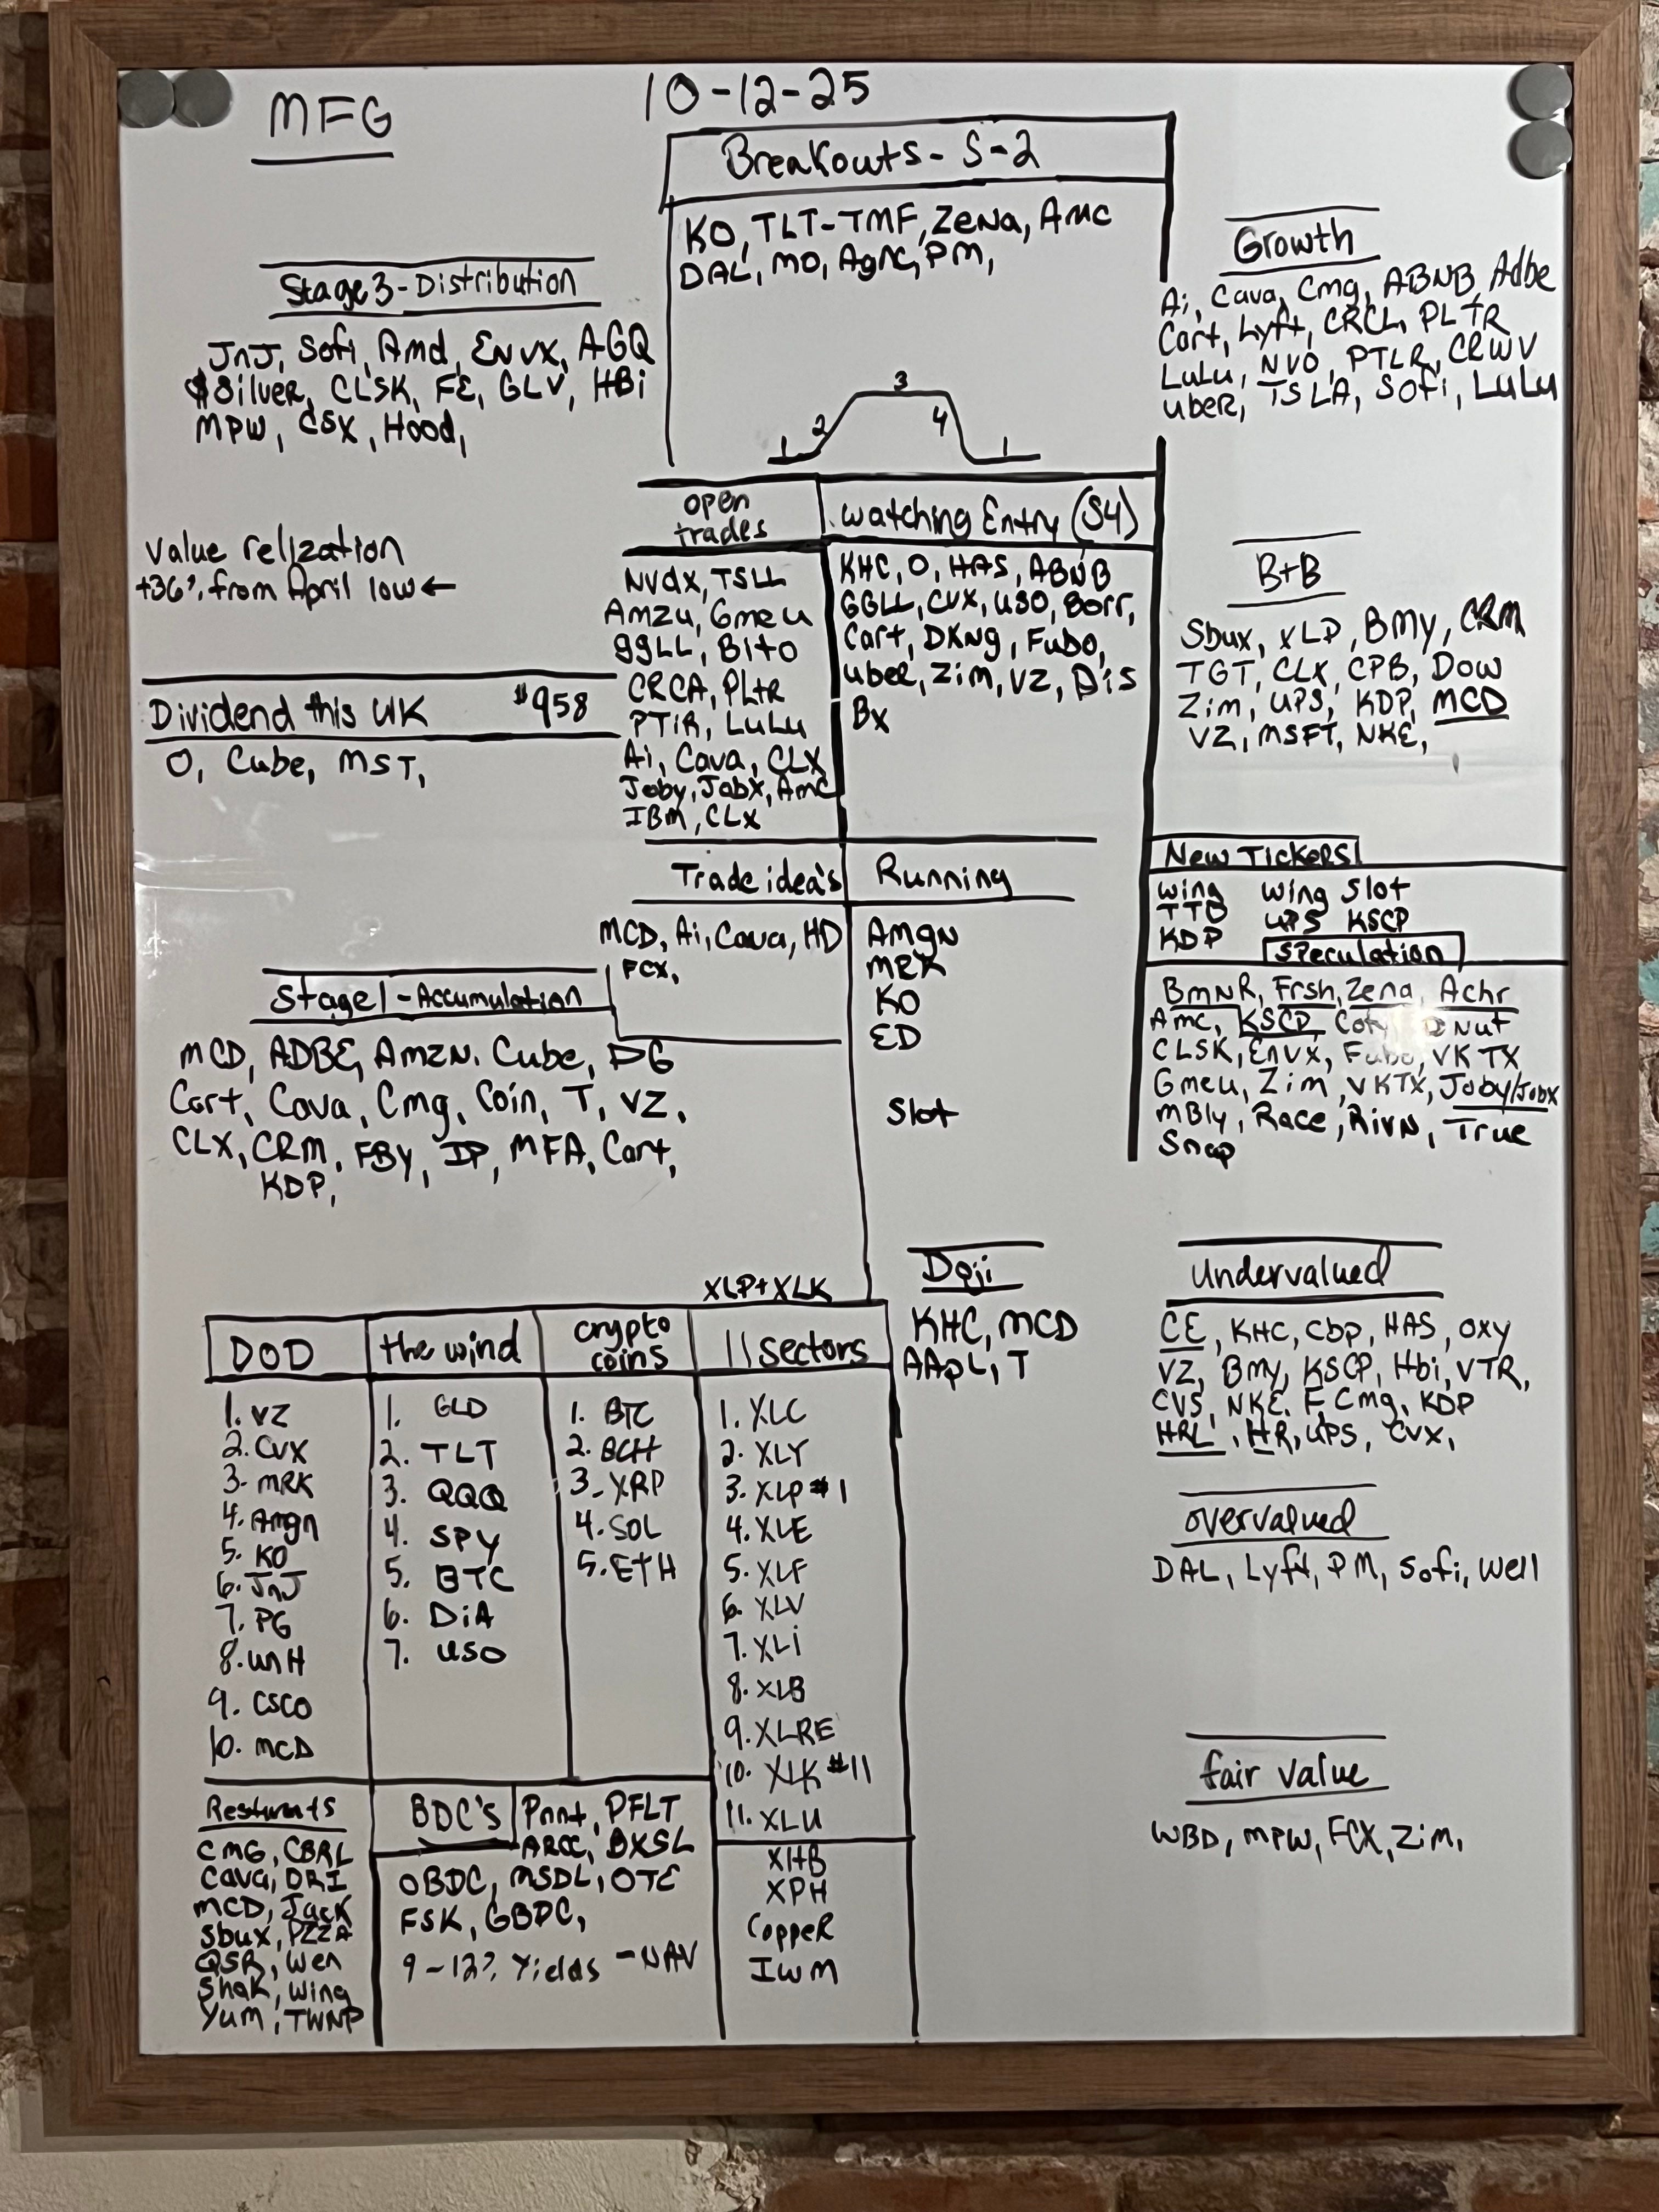 MFG
10-12-25
Breakouts - S-2
KO, TLT-TMF, Zena, Amc
DAL, MO, AgNC, PM,
Stage 3 - Distribution
JnJ, Sofi, Amd, ENVX, AGQ
$Silver, CLSK, FE, GLV, HBi
MPW, CSX, Hood,
3
2
4
1
1
Growth
Ai, Cava, Cmg, ABNB, Adbe
Cart, Lyft, CRCL, PLTR
LuLu, NVO, PTLR, CRWV
UBER, TSLA, Sofi, LuLu
Value relization
+36% from April low ←
Dividend this WK $958
O, Cube, MST,
open
trades
NVdX, TSLL
Amzu, Gmeu
ggLL, Bito
CRCA, PLtR
PTiR, LuLu
Ai, Cava, CLX
Joby, JobX, AmC
IBM, CLX
Watching Entry (S4)
KHC, O, HAS, ABNB
GGLL, CVX, USO, Borr,
Cart, DKNg, Fubo,
UBER, Zim, VZ, Dis
Bx
B+B
Sbux, XLP, Bmy, CRM
TGT, CLX, CPB, Dow
Zim, UPS, KDP, MCD
VZ, MSFT, NKE,
Trade idea's
MCD, Ai, Cava, HD
FCX,
Running
Amgn
MRK
KO
ED
Slot
New Tickers
Wing Wing Slot
TTD UPS KSCP
KDP
Speculation
BmNR, Frsh, Zena, Achr
Amc, KSCP, Coty, DNut
CLSK, Envx, Fubo, VKTX
Gmeu, Zim, VKTX, Joby/Jobx
MBly, Race, RivN, True
Snap
Stage 1 - Accumulation
MCD, ADBE, AmZN. Cube, DG
Cart, Cava, Cmg, Coin, T, VZ,
CLX, CRM, FBY, IP, MFA, Cart,
KDP,
XLP + XLK
DOD
1. VZ
2. CVX
3. MRK
4. Amgn
5. KO
6. JnJ
7. PG
8. UnH
9. CSCO
10. MCD
the wind
1. GLD
2. TLT
3. QQQ
4. SPY
5. BTC
6. DiA
7. USO
crypto
coins
1. BTC
2. BCH
3. XRP
4. SOL
5. ETH
11 Sectors
1. XLC
2. XLY
3. XLP #1
4. XLE
5. XLF
6. XLV
7. XLi
8. XLB
9. XLRE
10. XLK #11
11. XLU
XHB
XPH
CoppeR
IWM
Doji
KHC, MCD
AApL, T
Undervalued
CE, KHC, Cbp, HAS, OXY
VZ, Bmy, KSCP, Hbi, VTR,
CVS, NKE. F, Cmg, KDP
HRL, HR, UPS, CVX,
overvalued
DAL, Lyft, PM, Sofi, Well
fair value
WBD, MPW, FCX, Zim,
CMG, CBRL
Cava, DRI
MCD, Jack
Sbux, PZZA
QSR, Wen
Shak, Wing
Yum, TWNP
BDC's
Pnnt, PFLT
ARCC, BXSL
OBDC, MSDL, OTE
FSK, GBDC,
9-12% Yields - NAV